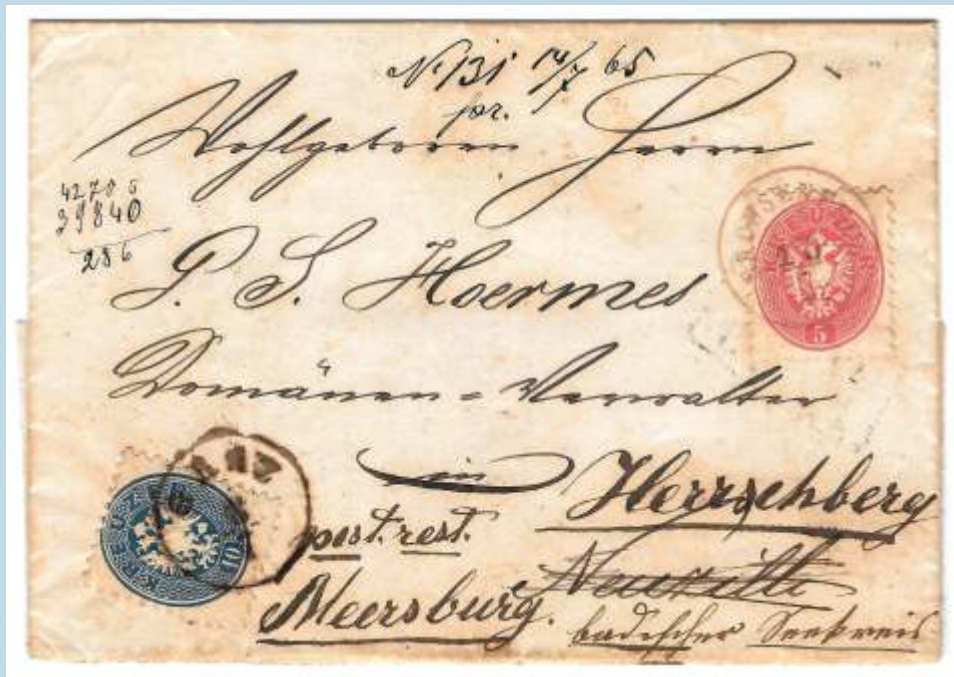 No 131 14/7 65
pr.
Wohlgeboren Herrn
42785
39840
286
P. S. Hoermes
Domänen=Verwalter
in Herrschberg
post. rest.
Meersburg.
badischer Seekreis
5
KREUZER
10